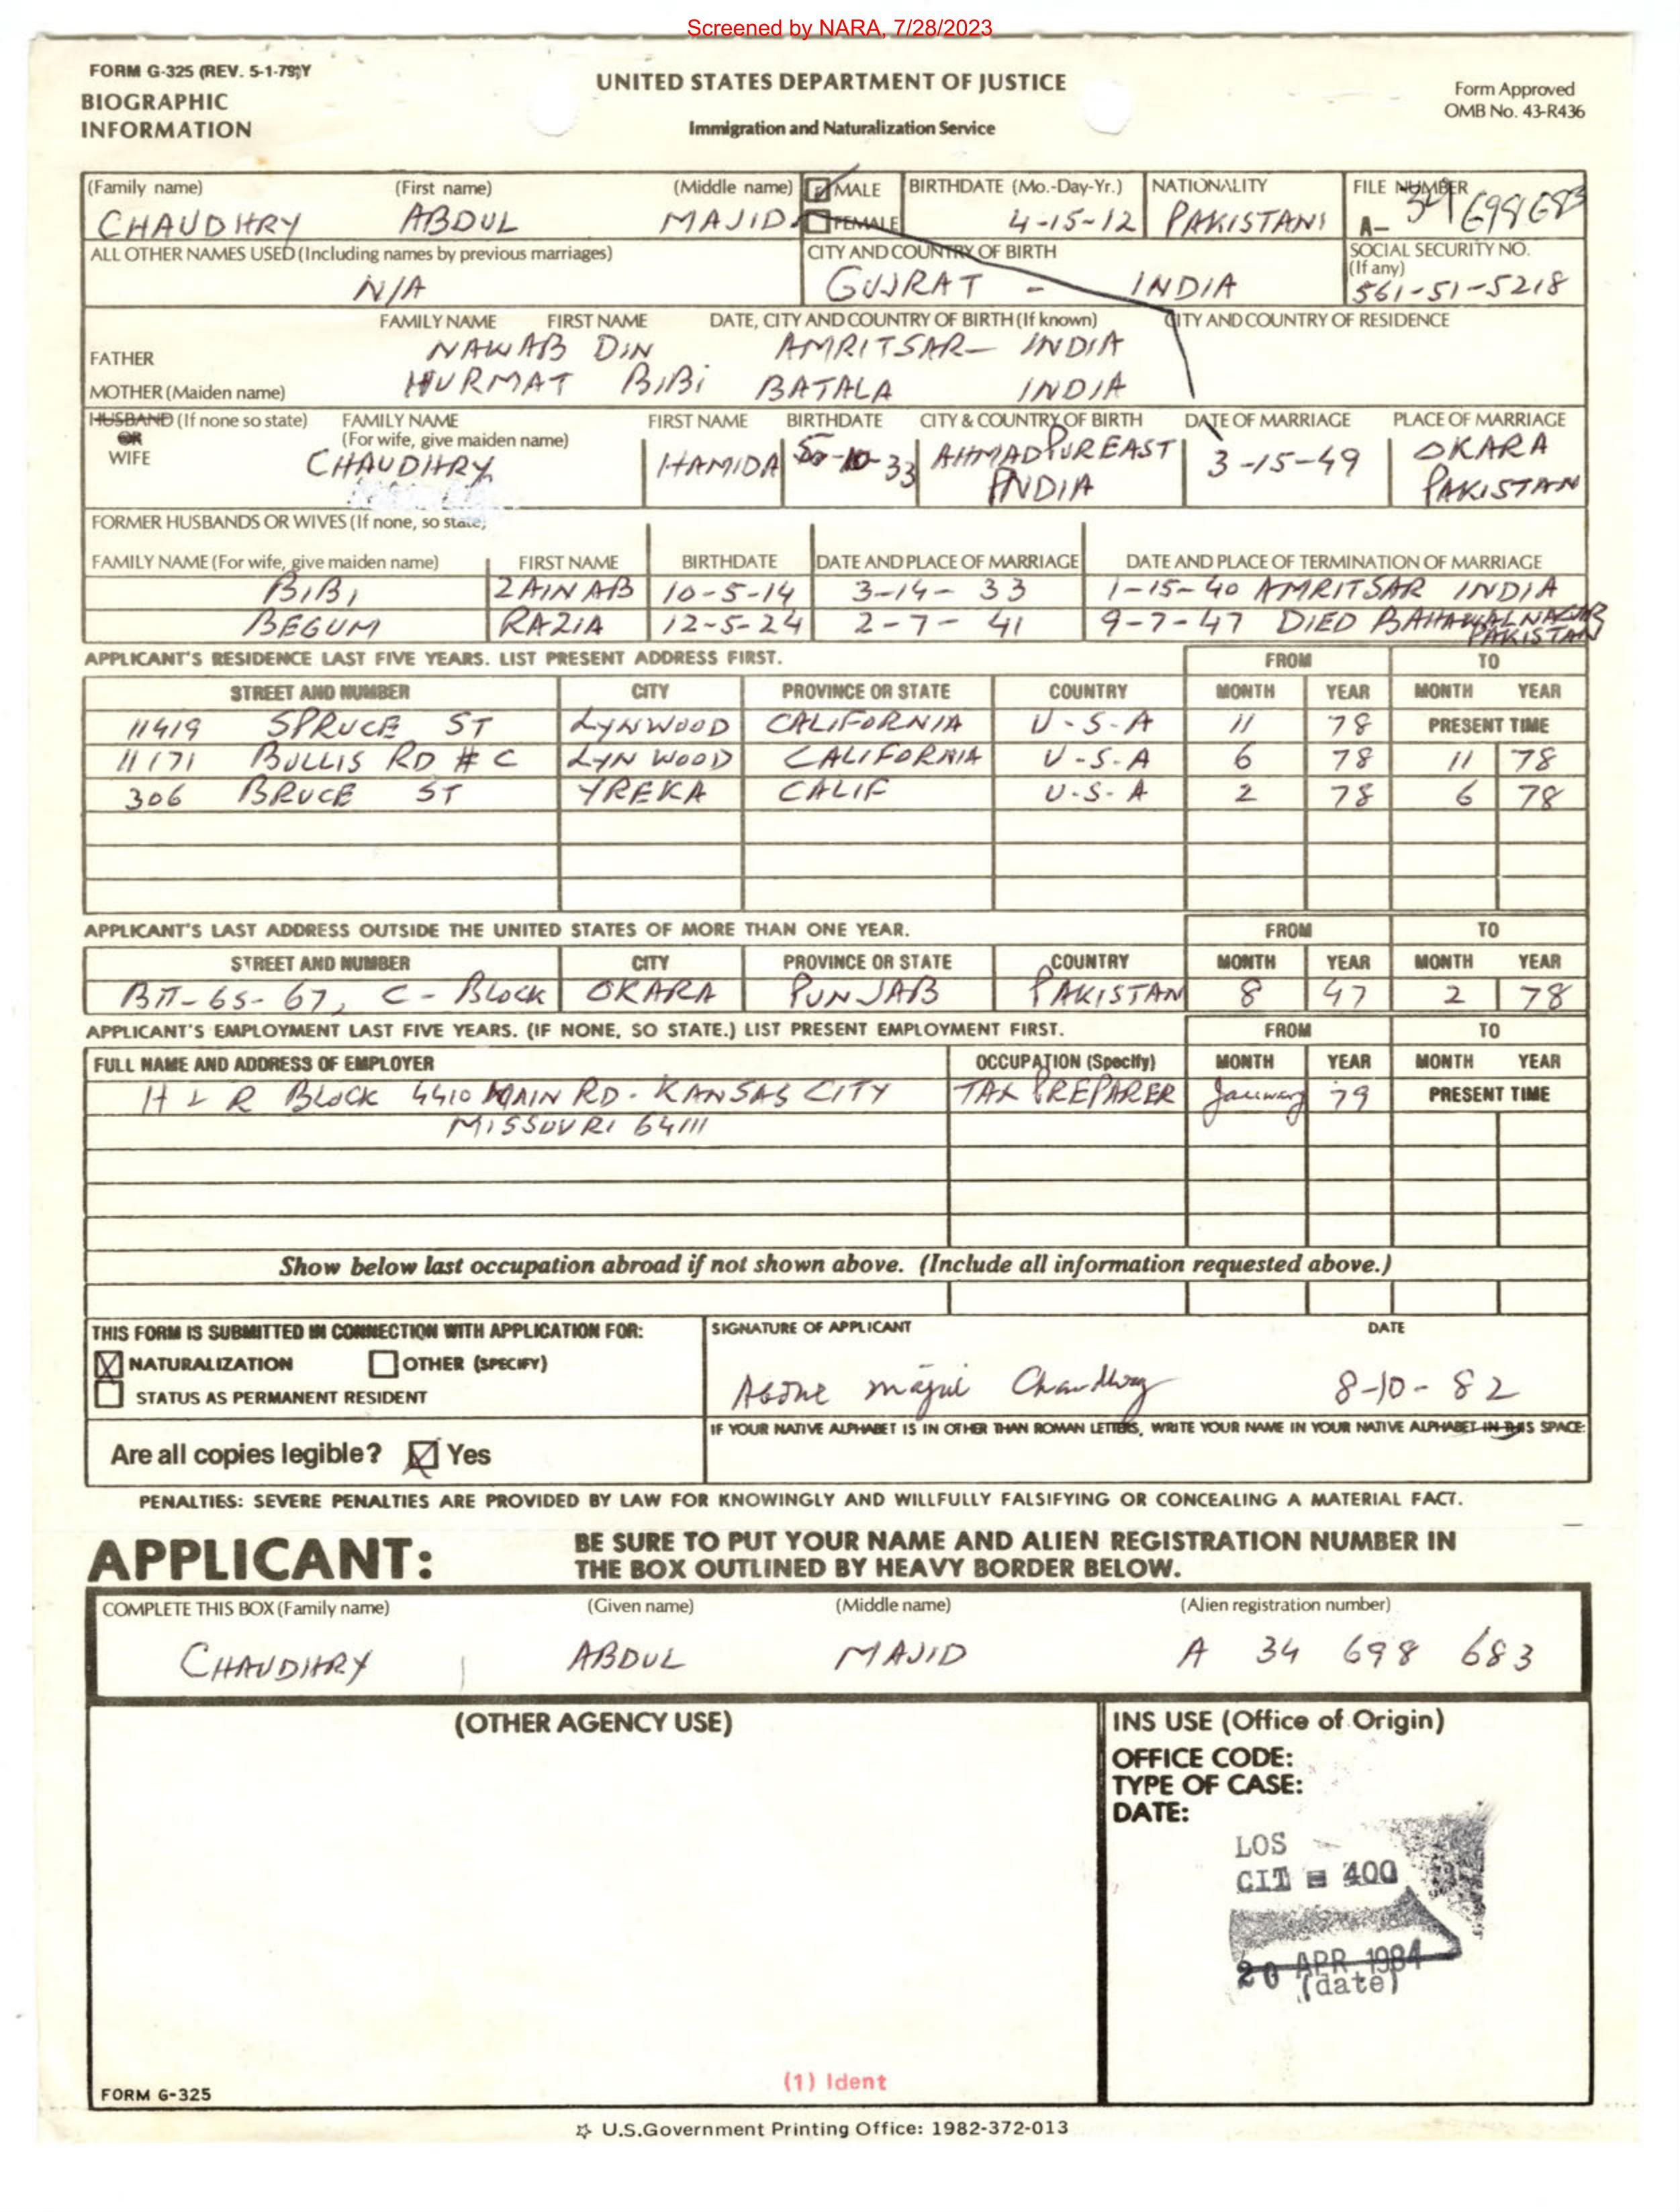 Screened by NARA, 7/28/2023
FORM G-325 (REV. 5-1-79)Y
BIOGRAPHIC
INFORMATION
UNITED STATES DEPARTMENT OF JUSTICE
Immigration and Naturalization Service
Form Approved
OMB No. 43-R436
(Family name) (First name) (Middle name) MALE BIRTHDATE (Mo.-Day-Yr.) NATIONALITY FILE NUMBER
CHAUDHRY ABDUL MAJID FEMALE 4-15-12 PAKISTANI A- 34 698 683
ALL OTHER NAMES USED (Including names by previous marriages) CITY AND COUNTRY OF BIRTH SOCIAL SECURITY NO.
(If any)
N/A GUJRAT - INDIA 561-51-5218
FAMILY NAME FIRST NAME DATE, CITY AND COUNTRY OF BIRTH (If known) CITY AND COUNTRY OF RESIDENCE
FATHER NAWAB DIN AMRITSAR- INDIA
MOTHER (Maiden name) HURMAT BIBI BATALA INDIA
HUSBAND (If none so state) FAMILY NAME FIRST NAME BIRTHDATE CITY & COUNTRY OF BIRTH DATE OF MARRIAGE PLACE OF MARRIAGE
OR (For wife, give maiden name)
WIFE CHAUDHRY HAMIDA 10-33 AHMADPUR EAST 3-15-49 OKARA
INDIA PAKISTAN
FORMER HUSBANDS OR WIVES (If none, so state)
FAMILY NAME (For wife, give maiden name) FIRST NAME BIRTHDATE DATE AND PLACE OF MARRIAGE DATE AND PLACE OF TERMINATION OF MARRIAGE
BIBI ZAINAB 10-5-14 3-14-33 1-15-40 AMRITSAR INDIA
BEGUM RAZIA 12-5-24 2-7-41 9-7-47 DIED BAHAWALNAGAR
PAKISTAN
APPLICANT'S RESIDENCE LAST FIVE YEARS. LIST PRESENT ADDRESS FIRST. FROM TO
STREET AND NUMBER CITY PROVINCE OR STATE COUNTRY MONTH YEAR MONTH YEAR
11419 SPRUCE ST LYNWOOD CALIFORNIA U-S-A 11 78 PRESENT TIME
11171 BULLIS RD # C LYN WOOD CALIFORNIA U-S-A 6 78 11 78
306 BRUCE ST YREKA CALIF U-S-A 2 78 6 78
APPLICANT'S LAST ADDRESS OUTSIDE THE UNITED STATES OF MORE THAN ONE YEAR. FROM TO
STREET AND NUMBER CITY PROVINCE OR STATE COUNTRY MONTH YEAR MONTH YEAR
BII-65-67, C-BLOCK OKARA PUNJAB PAKISTAN 8 47 2 78
APPLICANT'S EMPLOYMENT LAST FIVE YEARS. (IF NONE, SO STATE.) LIST PRESENT EMPLOYMENT FIRST. FROM TO
FULL NAME AND ADDRESS OF EMPLOYER OCCUPATION (Specify) MONTH YEAR MONTH YEAR
H & R BLOCK 4410 MAIN RD. KANSAS CITY TAX PREPARER January 79 PRESENT TIME
MISSOURI 64111
Show below last occupation abroad if not shown above. (Include all information requested above.)
THIS FORM IS SUBMITTED IN CONNECTION WITH APPLICATION FOR: SIGNATURE OF APPLICANT DATE
NATURALIZATION OTHER (SPECIFY)
STATUS AS PERMANENT RESIDENT Abdul Majid Chaudhry 8-10-82
IF YOUR NATIVE ALPHABET IS IN OTHER THAN ROMAN LETTERS, WRITE YOUR NAME IN YOUR NATIVE ALPHABET IN THIS SPACE:
Are all copies legible? Yes
PENALTIES: SEVERE PENALTIES ARE PROVIDED BY LAW FOR KNOWINGLY AND WILLFULLY FALSIFYING OR CONCEALING A MATERIAL FACT.
APPLICANT: BE SURE TO PUT YOUR NAME AND ALIEN REGISTRATION NUMBER IN
THE BOX OUTLINED BY HEAVY BORDER BELOW.
COMPLETE THIS BOX (Family name) (Given name) (Middle name) (Alien registration number)
CHAUDHRY ABDUL MAJID A 34 698 683
(OTHER AGENCY USE) INS USE (Office of Origin)
OFFICE CODE:
TYPE OF CASE:
DATE:
LOS
CIT = 400
20 APR 1984
(date)
(1) Ident
FORM G-325
☆ U.S.Government Printing Office: 1982-372-013